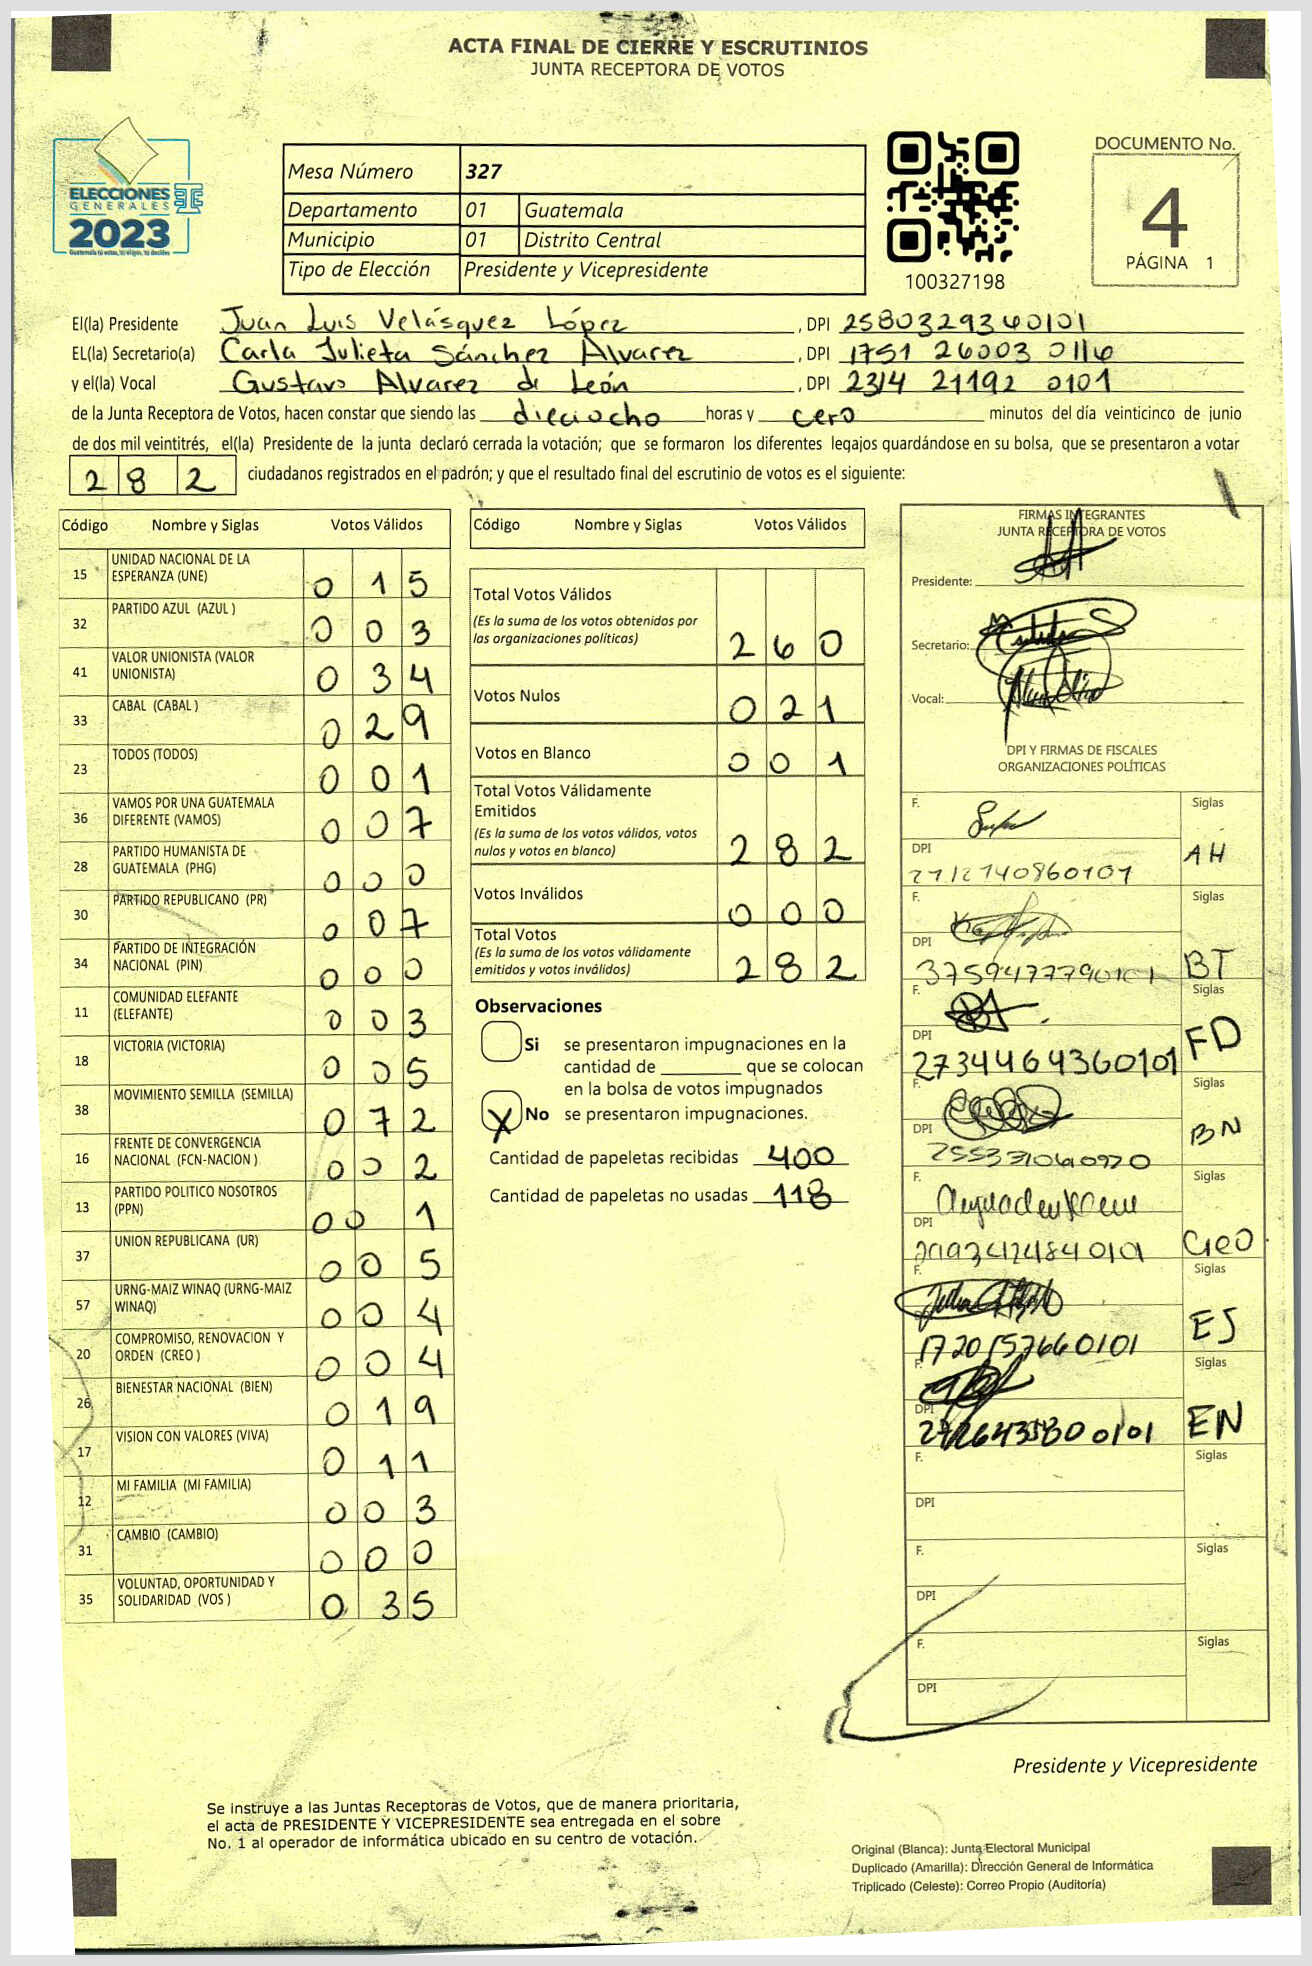 ACTA FINAL DE CIERRE Y ESCRUTINIOS
JUNTA RECEPTORA DE VOTOS
ELECCIONES
GENERALES
2023
Guatemala tú votas, tú eliges, tú decides
TSE
Mesa Número 327
Departamento 01 Guatemala
Municipio 01 Distrito Central
Tipo de Elección Presidente y Vicepresidente
100327198
DOCUMENTO No.
4
PÁGINA 1
El(la) Presidente Juan Luis Velásquez López, DPI 2580329360101
EL(la) Secretario(a) Carla Julieta Sánchez Alvarez, DPI 1751 26003 0116
y el(la) Vocal Gustavo Alvarez de León, DPI 2314 21192 0101
de la Junta Receptora de Votos, hacen constar que siendo las dieciocho horas y cero minutos del día veinticinco de junio
de dos mil veintitrés, el(la) Presidente de la junta declaró cerrada la votación; que se formaron los diferentes legajos guardándose en su bolsa, que se presentaron a votar
282 ciudadanos registrados en el padrón; y que el resultado final del escrutinio de votos es el siguiente:
Código Nombre y Siglas Votos Válidos
15 UNIDAD NACIONAL DE LA ESPERANZA (UNE) 015
32 PARTIDO AZUL (AZUL ) 003
41 VALOR UNIONISTA (VALOR UNIONISTA) 034
33 CABAL (CABAL ) 029
23 TODOS (TODOS) 001
36 VAMOS POR UNA GUATEMALA DIFERENTE (VAMOS) 007
28 PARTIDO HUMANISTA DE GUATEMALA (PHG) 000
30 PARTIDO REPUBLICANO (PR) 007
34 PARTIDO DE INTEGRACIÓN NACIONAL (PIN) 000
11 COMUNIDAD ELEFANTE (ELEFANTE) 003
18 VICTORIA (VICTORIA) 005
38 MOVIMIENTO SEMILLA (SEMILLA) 072
16 FRENTE DE CONVERGENCIA NACIONAL (FCN-NACION ) 002
13 PARTIDO POLITICO NOSOTROS (PPN) 001
37 UNION REPUBLICANA (UR) 005
57 URNG-MAIZ WINAQ (URNG-MAIZ WINAQ) 004
20 COMPROMISO, RENOVACION Y ORDEN (CREO ) 004
26 BIENESTAR NACIONAL (BIEN) 019
17 VISION CON VALORES (VIVA) 011
12 MI FAMILIA (MI FAMILIA) 003
31 CAMBIO (CAMBIO) 000
35 VOLUNTAD, OPORTUNIDAD Y SOLIDARIDAD (VOS ) 035
Código Nombre y Siglas Votos Válidos
Total Votos Válidos
(Es la suma de los votos obtenidos por
las organizaciones políticas) 260
Votos Nulos 021
Votos en Blanco 001
Total Votos Válidamente
Emitidos
(Es la suma de los votos válidos, votos
nulos y votos en blanco) 282
Votos Inválidos 000
Total Votos
(Es la suma de los votos válidamente
emitidos y votos inválidos) 282
Observaciones
Si se presentaron impugnaciones en la
cantidad de ________ que se colocan
en la bolsa de votos impugnados
X No se presentaron impugnaciones.
Cantidad de papeletas recibidas 400
Cantidad de papeletas no usadas 118
FIRMAS INTEGRANTES
JUNTA RECEPTORA DE VOTOS
Presidente:
Secretario:
Vocal:
DPI Y FIRMAS DE FISCALES
ORGANIZACIONES POLÍTICAS
F. Siglas
DPI AH
F. Siglas
DPI BT
F. Siglas
DPI 2734464360101 FD
F. Siglas
DPI BN
F. Siglas
DPI creo
F. Siglas
1720157660101 ES
F. Siglas
DPI EN
F. Siglas
DPI
F. Siglas
DPI
F. Siglas
DPI
Presidente y Vicepresidente
Se instruye a las Juntas Receptoras de Votos, que de manera prioritaria,
el acta de PRESIDENTE Y VICEPRESIDENTE sea entregada en el sobre
No. 1 al operador de informática ubicado en su centro de votación.
Original (Blanca): Junta Electoral Municipal
Duplicado (Amarilla): Dirección General de Informática
Triplicado (Celeste): Correo Propio (Auditoría)